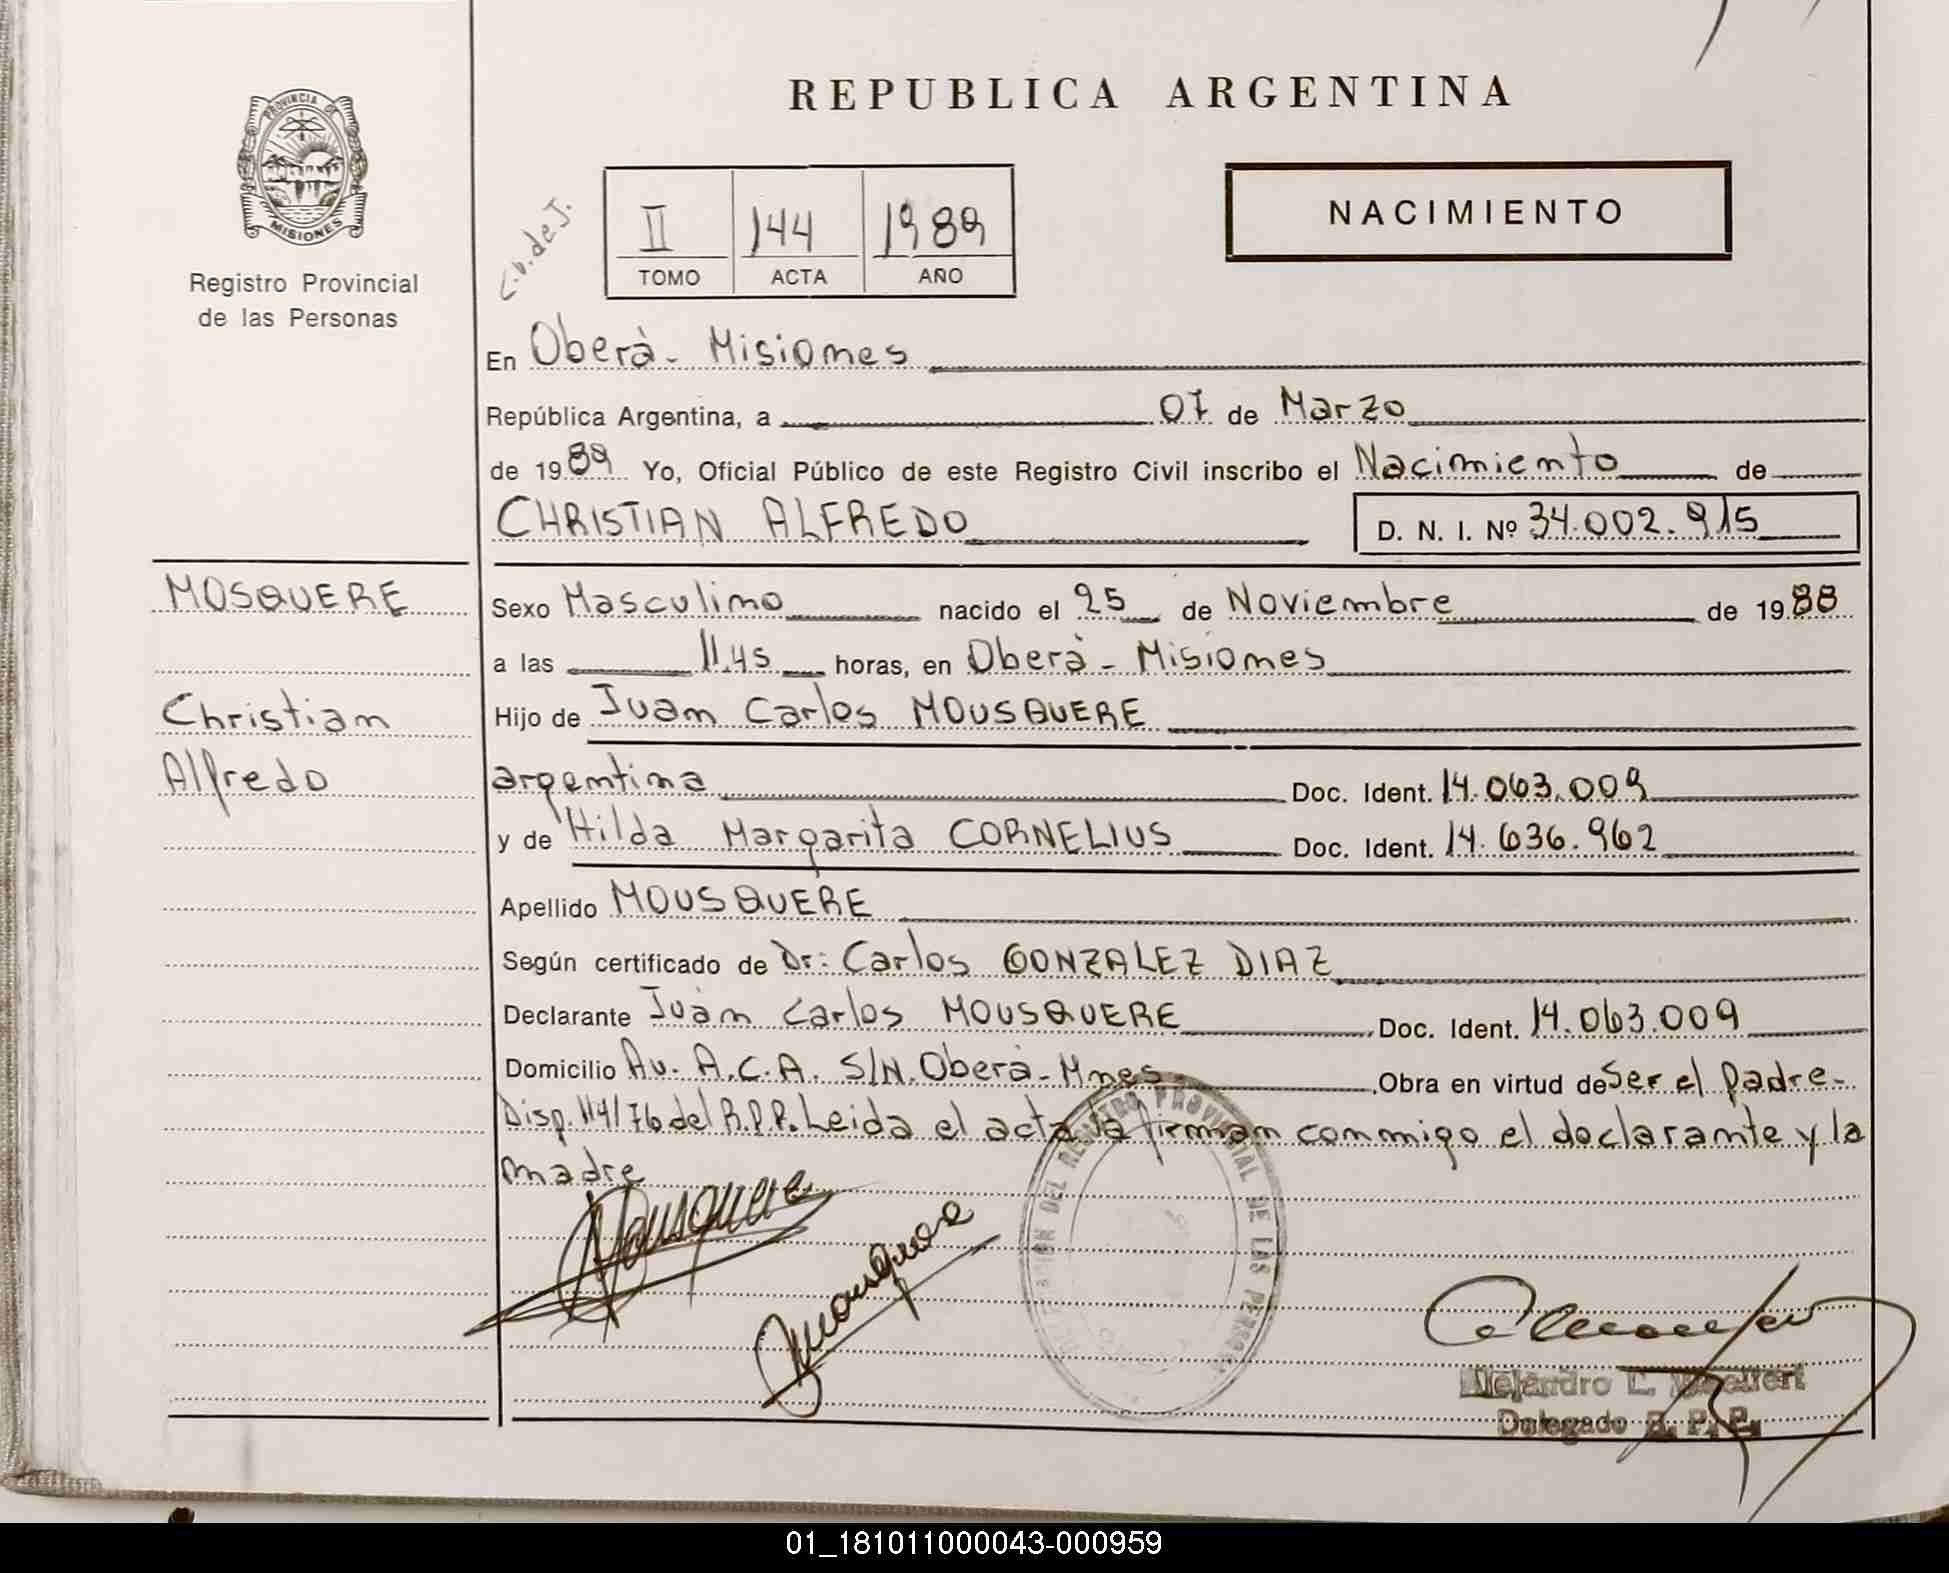 REPUBLICA ARGENTINA
PROVINCIA DE
MISIONES
Registro Provincial
de las Personas
L.D. de J.
II 144 1989
TOMO ACTA AÑO
NACIMIENTO
En Oberà - Misiones
República Argentina, a 07 de Marzo
de 1989 Yo, Oficial Público de este Registro Civil inscribo el Nacimiento de
CHRISTIAN ALFREDO D. N. I. Nº 34.002.915
MOSQUERE
Christian
Alfredo
Sexo Masculino nacido el 25 de Noviembre de 1988
a las 11,45 horas, en Oberà - Misiones
Hijo de Juan Carlos MOUSQUERE
argentina Doc. Ident. 14.063.009
y de Hilda Margarita CORNELIUS Doc. Ident. 14.636.962
Apellido MOUSQUERE
Según certificado de Dr: Carlos GONZALEZ DIAZ
Declarante Juàn Carlos MOUSQUERE Doc. Ident. 14.063.009
Domicilio Av. A.C.A. S/N. Oberà - Mnes Obra en virtud de Ser el Padre-
Disp. 114/76 del R.P.P. Leida el acta la firman conmigo el declarante y la
madre
Mousquere
Mousquere
DEL REGISTRO PROVINCIAL DE LAS PERSONAS
Alejandro L.
Delegado R. P. P.
01_181011000043-000959